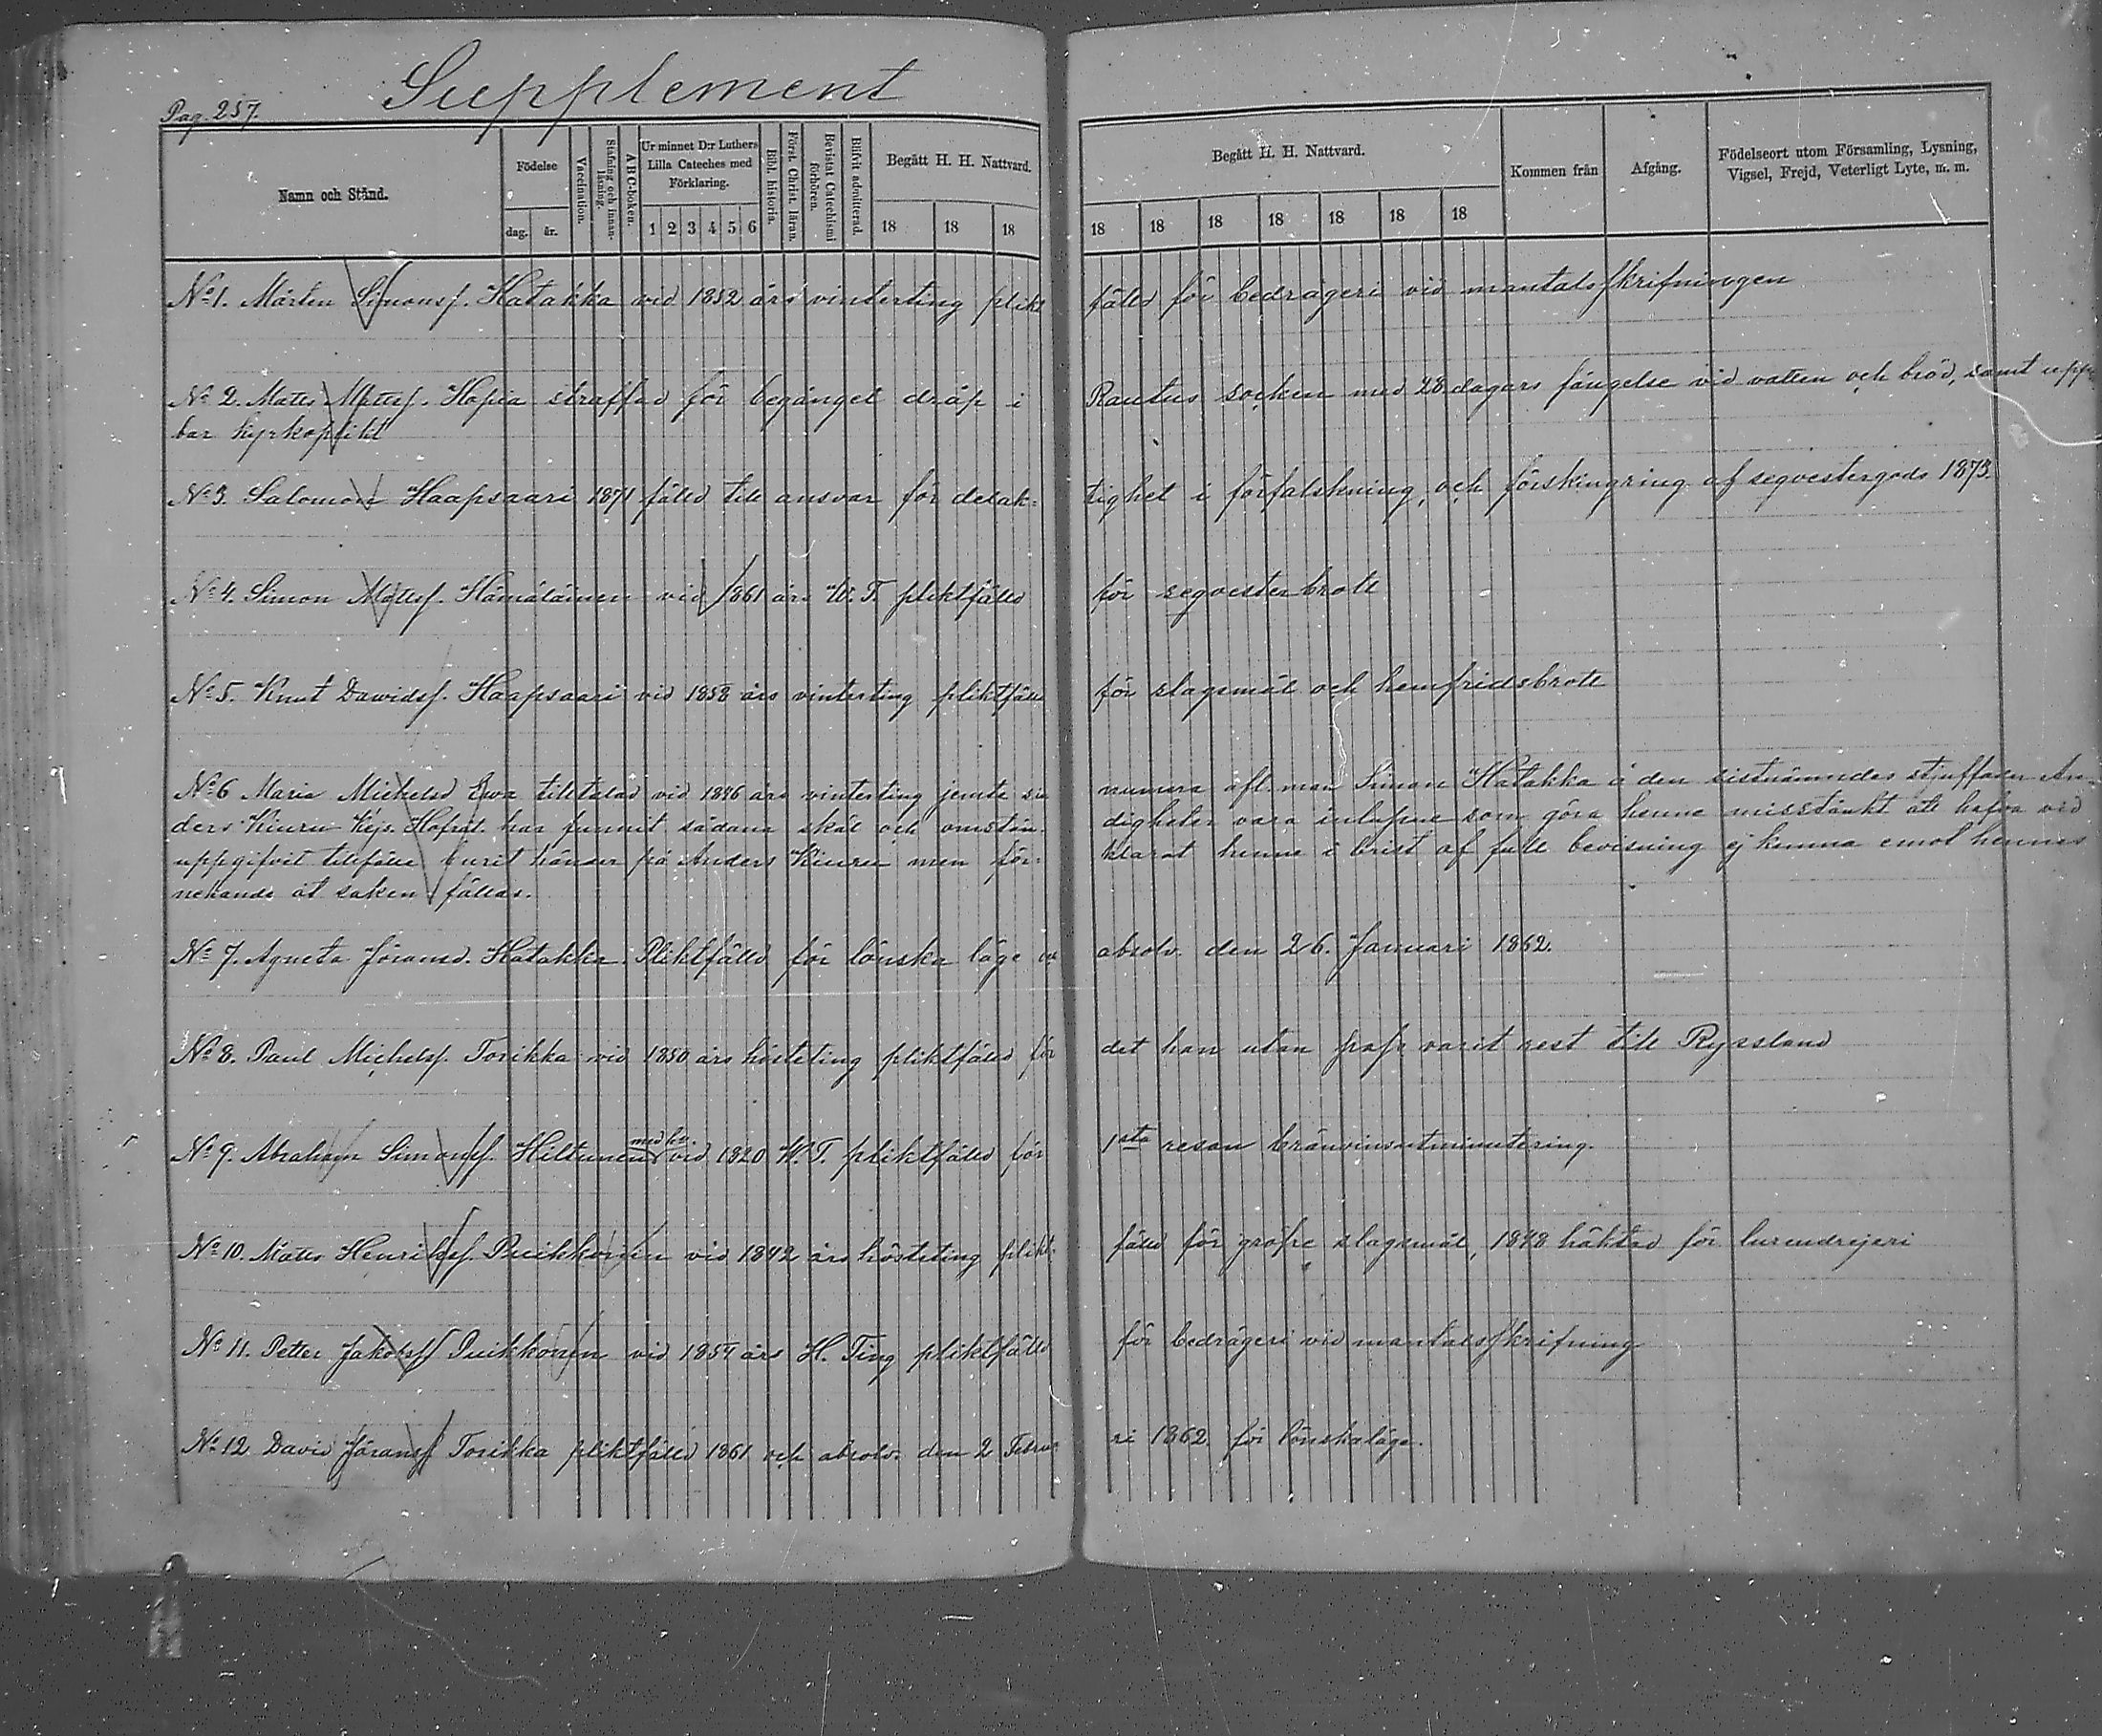 Supplement
Pag. 257.
Namn och Stånd.
Födelse
dag.
år.
Vaccination.
Stafning och innanläsning.
ABC-boken.
Ur minnet D:r Luthers
Lilla Cateches med
Förklaring.
1 2 3 4 5 6
Bibl. historia.
Först. Christ. läran.
Bevistat Catechismi förhören.
Blifvit admitterad.
Begått H. H. Nattvard.
18 18 18
Begått H. H. Nattvard.
18 18 18 18 18 18 18
Kommen från
Afgång.
Födelseort utom Församling, Lysning,
Vigsel, Frejd, Veterligt Lyte, m. m.
No 1. Mårten Simonsf. Hatakka vid 1852 års vinterting plikt fälld för bedrägeri vid mantalsskrifningen
No 2. Matts Mattsf. Hopia straffad för begånget dråp i Rautus socken med 28 dagars fängelse vid vatten och bröd, samt uppen
bar kyrkoplikt
No 3. Salomon Haapsaari 1871 fälld till ansvar för delak= tighet i förfalskning, och förskingring af seqvestergods 1873.
No 4. Simon Mattsf. Hämäläinen vid 1861 års W. T. pliktfälld för seqvesterbrott
No 5. Knut Davidsf. Haapsaari vid 1858 års vinterting pliktfälld för slagsmål och hemfridsbrott
No 6 Maria Michelsd Ewa tilltalad vid 1846 års vinterting jemte sin numera afl. man Simon Hatakka å den sistnämndes stjuffader An-
ders Kiuru Kejs. Hofrät. har funnit sådana skäl och omstän- digheter vara inlupne som göra henne misstänkt att hafva vid
uppgifvit tillfälle burit händer på Anders Kiuru men för- klarat henne i brist af full bevisning ej kunna emot hennes
nekande åt saken fällas.
No 7. Agneta Jöransd. Hatakka. Pliktfälld för lönska läge och absolv. den 26. Januari 1862.
No 8. Paul Michelsf. Torikka vid 1850 års höstting pliktfälld för det han utan pass varit rest till Ryssland
med hu.
No 9. Abraham Simonsf. Hiltunen vid 1820 W. T. pliktfälld för 1sta resan bränvinsutminutering.
No 10. Matts Henriksf. Puikkonen vid 1842 års höstting plikt- fälld för gröfre slagsmål, 1848 häktad för lurendrejeri
No 11. Petter Jakobsf Puikkonen vid 1857 års H. Ting pliktfälld för bedrägeri vid mantalsskrifning
No 12 David Jöransf Torikka pliktfälld 1861 och absolv. den 2 Februa ri 1862 för lönskaläge.